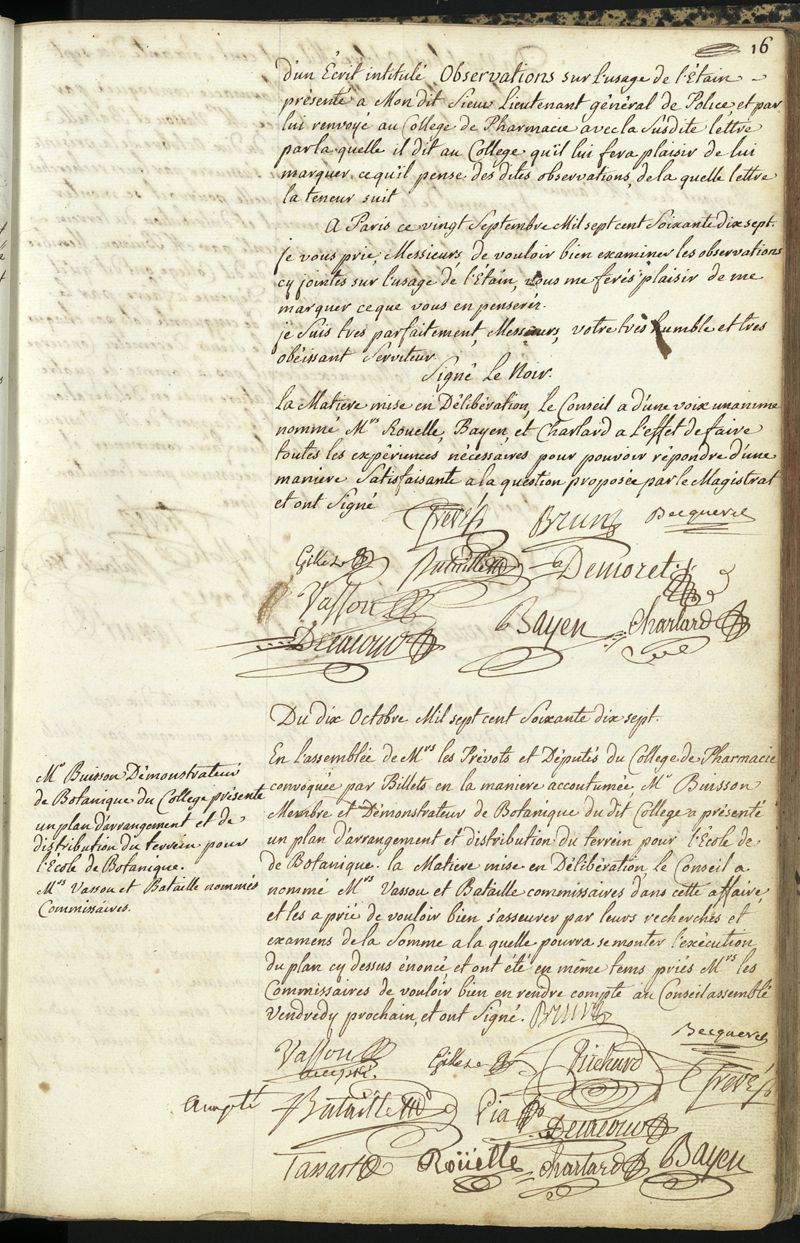 16
d'un Écrit intitulé Observations sur l'usage de l'Étain
présenté a Mon dit Sieur Lieutenant général de Police, et par
lui renvoyé au College de Pharmacie avec la Susdite lettre
par la quelle il dit au College qu'il lui fera plaisir de lui
marquer ce qu'il pense des dites observations, de la quelle lettre
la teneur suit
A Paris ce vingt Septembre Mil sept cent Soixante dix sept.
je vous prie, Messieurs, de vouloir bien examiner les observations
cy jointes sur l'usage de l'Étain, vous me ferés plaisir de me
marquer ce que vous en penserés.
je Suis tres parfaitement, Messieurs, votre très humble et tres
obéissant Serviteur.
Signé Le Noir.
la Matiere mise en Délibération, Le Conseil a d'une voix unanime
nommé Mrs Rouelle, Bayen, et Charlard a l'effet de faire
toutes les expériences nécessaires pour pouvoir répondre d'une
maniere Satisfaisante a la question proposée par le Magistrat
et ont Signé
Trevés Brun Becqueret
Gilles Bataille Demoret
Vassou
Bayen Charlard
Deracour
Du dix Octobre Mil sept cent Soixante dix sept.
Mr Buisson Démonstrateur
de Botanique du College présente
un plan d'arrangement et de
distribution du terrein pour
l'École de Botanique.
Mrs Vassou et Bataille nommés
Commissaires.
En l'assemblée de Mrs les Prévots et Députés du College de Pharmacie
convoquée par Billets en la maniere accoutumée, Mr Buisson
Membre et Démonstrateur de Botanique du dit College a présenté
un plan d'arrangement et distribution du terrein pour l'École de
de Botanique. la Matiere mise en Délibération, le Conseil a
nommé Mrs Vassou et Bataille commissaires dans cette affaire,
et les a prié de vouloir bien s'assurer par leurs recherches et
examens de la Somme a la quelle pourra se monter l'exécution
du plan cy dessus énoncé et ont été en même tems priés Mrs les
Commissaires de vouloir bien en rendre compte au Conseil assemblé
Vendredy prochain, et ont Signé. Brun
Becqueret
Vassou Gilles Richard Trevés
accepté.
Accepté Bataille Pia Deracour
Tassart Roüelle Charlard Bayen